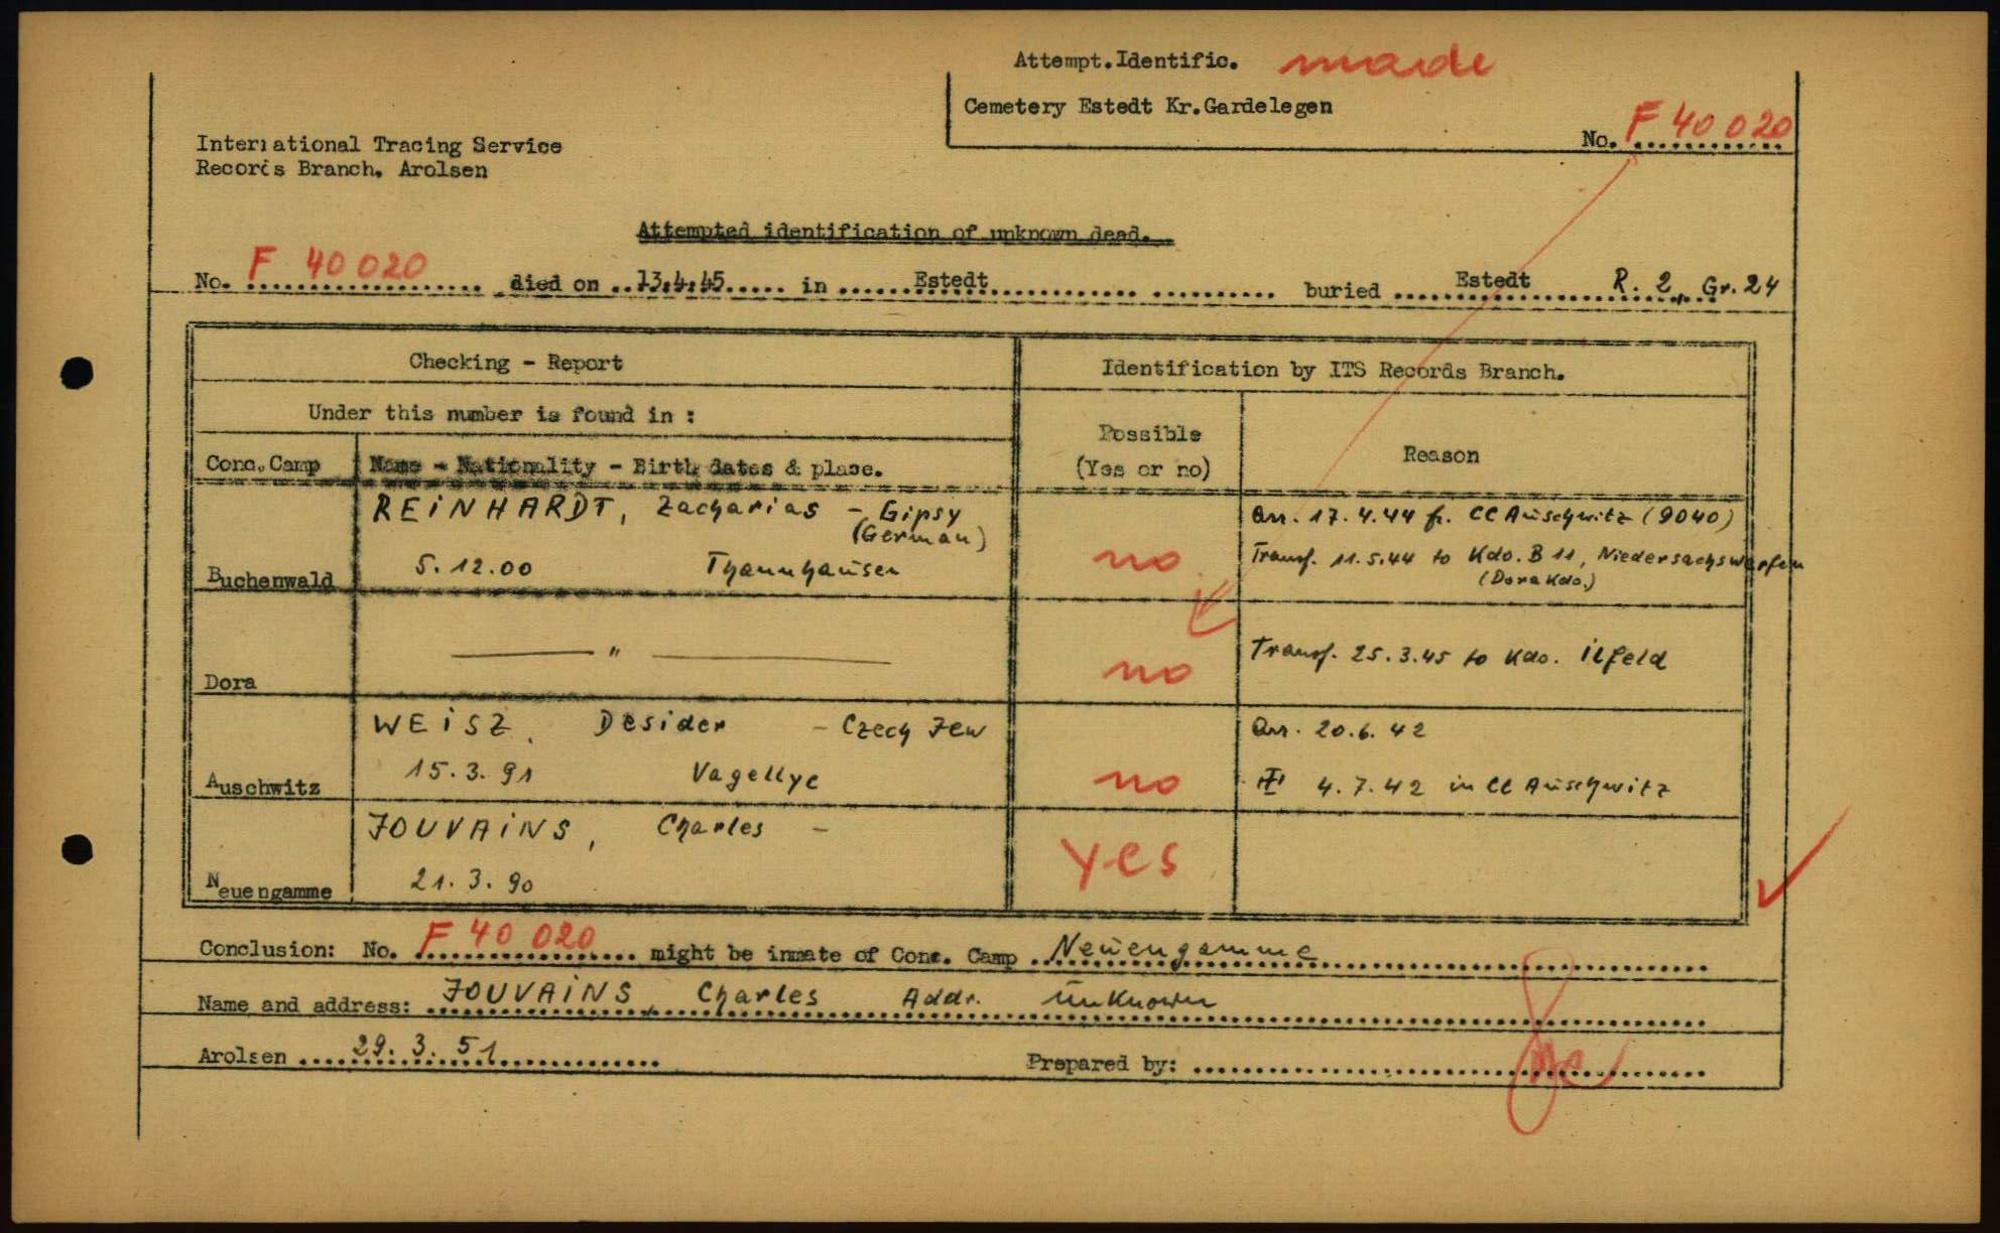 Attempt.Identific. made
Cemetery Estedt Kr.Gardelegen
No. F 40 020
International Tracing Service
Records Branch. Arolsen
Attempted identification of unknown dead.
No. F 40 020 died on 13.4.45 in Estedt buried Estedt R. 2, Gr. 24
Checking - Report
Identification by ITS Records Branch.
Under this number is found in :
Possible
(Yes or no)
Reason
Conc.Camp
Name - Nationality - Birth dates & place.
REINHARDT, Zacharias - Gipsy
(German)
5.12.00 Thannhausen
Buchenwald
no
arr. 17.4.44 fr. CC Auschwitz (9040)
Transf. 11.5.44 to Kdo. B 11, Niedersachswerfen
(Dora Kdo.)
Dora
"
no
Transf. 25.3.45 to Kdo. Ilfeld
WEISZ, Desider - Czech Jew
15.3.91 Vagellye
Auschwitz
no
arr. 20.6.42
4.7.42 in CC Auschwitz
JOUVAINS, Charles -
21.3.90
Neuengamme
yes
Conclusion: No. F 40 020 might be inmate of Conc. Camp Neuengamme
Name and address: JOUVAINS, Charles Addr. unknown
Arolsen 29.3.51
Prepared by: